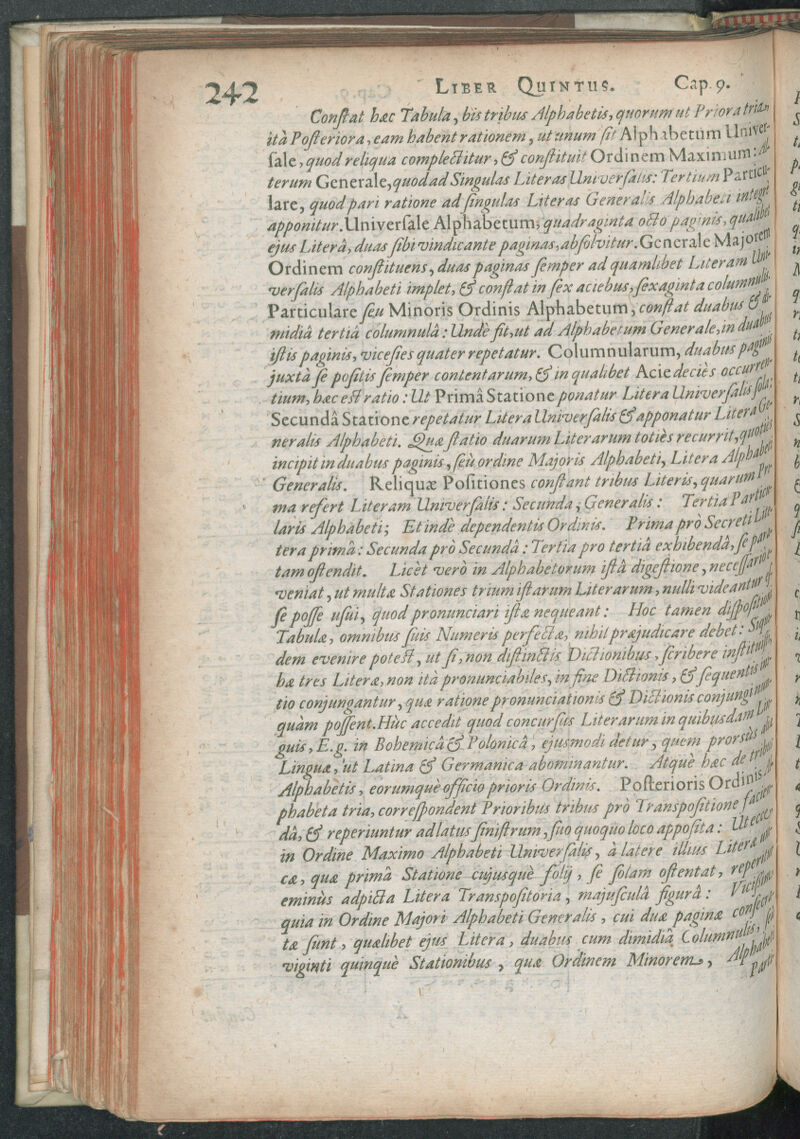 242 LIBER QUINTUS. Cap. 9.
Conſtat hæc Tabula, bis tribus Alphabetis, quorum ut Priora tria,
ità Poſteriora, eam habent rationem, ut unum ſit Alphabetum Univer-
ſale, quod reliqua complectitur, & conſtituit Ordinem Maximum: Al-
terum Generale, quod ad Singulas Literas Univerſalis: Tertium Particu-
lare, quod pari ratione ad ſingulas Literas Generalis Alphabeti integri
apponitur. Univerſale Alphabetum, quadraginta octo paginis, qualibet
ejus Literâ, duas ſibi vindicante paginas, abſolvitur. Generale Majorem
Ordinem conſtituens, duas paginas ſemper ad quamlibet Literam Uni-
verſalis Alphabeti implet, & conſtat in ſex aciebus, ſexaginta columnulis.
Particulare ſeu Minoris Ordinis Alphabetum, conſtat duabus & di-
midiâ tertiâ columnulâ: Undè fit, ut ad Alphabetum Generale, in duabus
iſtis paginis, viceſies quater repetatur. Columnularum, duabus paginis
juxtà ſe poſitis ſemper contentarum, & in qualibet Acie decies occurren-
tium, hæc eſt ratio: Ut Primâ Statione ponatur Litera Univerſalis ſola:
Secundâ Statione repetatur Litera Univerſalis & apponatur Litera Ge-
neralis Alphabeti. Quæ ſtatio duarum Literarum toties recurrit, quoties
incipit in duabus paginis, ſeu ordine Majoris Alphabeti, Litera Alphabeti
Generalis. Reliquæ Poſitiones conſtant tribus Literis, quarum Pri-
ma refert Literam Univerſalis: Secunda, Generalis: Tertia Particu-
laris Alphabeti; Et indè dependentis Ordinis. Prima prò Secreti Lit-
tera primâ: Secunda prò Secundâ: Tertia pro tertiâ exhibendâ, ſe par-
tam oſtendit. Licèt verò in Alphabetorum iſtâ digeſtione, neceſſariò
veniat, ut multæ Stationes trium iſtarum Literarum, nulli videantur eſ-
ſe poſſe uſui, quod pronunciari iſtæ nequeant: Hoc tamen diſpoſitioni
Tabulæ, omnibus ſuis Numeris perfectæ, nihil præjudicare debet: Siqui-
dem evenire poteſt, ut ſi, non diſtinctis Dictionibus, ſcribere inſtituas,
hæ tres Literæ, non ità pronunciabiles, in fine Dictionis, & ſequentis in-
tio conjungantur, quæ ratione pronunciationis & Dictionis conjungi nun-
quàm poſſent. Hùc accedit quod concurſus Literarum in quibusdam Lin-
guis, E.g. in Bohemicâ & Polonicâ, ejusmodi detur, quem prorſus aliæ
Linguæ, ut Latina & Germanica abominantur. Atquè hæc de tribus
Alphabetis, eorumquè officio prioris Ordinis. Poſterioris Ordinis Al-
phabeta tria, correſpondent Prioribus tribus prò Transpoſitione facien-
dâ, & reperiuntur ad latus ſiniſtrum, ſuo quoquo loco appoſita: Ut ecce,
in Ordine Maximo Alphabeti Univerſalis, à latere illius Literæ uni-
cæ, quæ primâ Statione cujusquè folij, ſe ſolam oſtentat, reperitur
eminùs adpicta Litera Transpoſitoria, majuſculâ figurâ: Viciſſim
quia in Ordine Majori Alphabeti Generalis, cui duæ paginæ conſecra-
tæ ſunt, quælibet ejus Litera, duabus cum dimidiâ Columnulis, ſeu
viginti quinquè Stationibus, quæ Ordinem Minorem, Alphabeti
Parti-